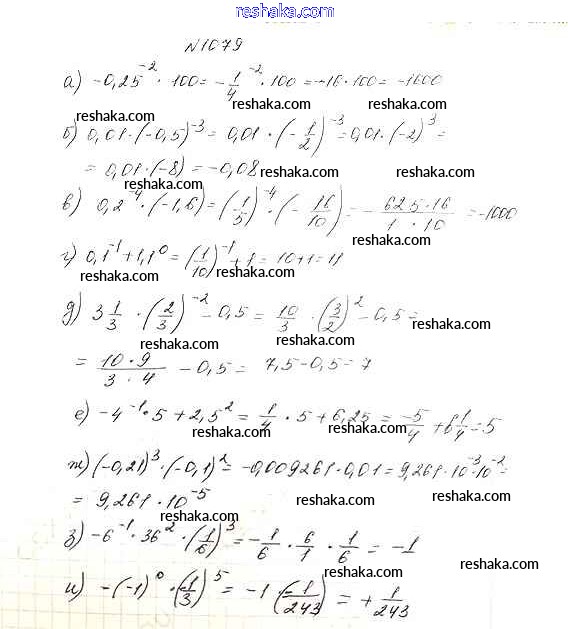 reshaka.com
№1079
а) -0,25⁻² · 100 = -1/4⁻² · 100 = -16·100 = -1600
reshaka.com reshaka.com reshaka.com
б) 0,01·(-0,5)⁻³ = 0,01·(-1/2)⁻³ = 0,01·(-2)³ =
= 0,01·(-8) = -0,08
reshaka.com reshaka.com
в) 0,2⁻⁴·(-1,6) = (1/5)⁻⁴·(-16/10) = -625·16/1·10 = -1000
reshaka.com reshaka.com
г) 0,1⁻¹+1,1⁰ = (1/10)⁻¹+1 = 10+1 = 11
reshaka.com reshaka.com
д) 3 1/3 · (2/3)⁻² - 0,5 = 10/3 · (3/2)² - 0,5 =
reshaka.com reshaka.com
= 10·9/3·4 - 0,5 = 7,5-0,5 = 7
reshaka.com
е) -4⁻¹·5 + 2,5² = 1/4 · 5 + 6,25 = -5/4 + 6 1/4 = 5
reshaka.com reshaka.com
ж) (-0,21)³·(-0,1)² = -0,009261·0,01 = 9,261·10⁻³·10⁻² =
reshaka.com
= 9,261·10⁻⁵
reshaka.com reshaka.com
з) -6⁻¹·36²·(1/6)³ = -1/6 · 6/1 · 1/6 = -1
reshaka.com reshaka.com
и) -(-1)⁰·(-1/3)⁵ = -1·(-1/243) = +1/243
reshaka.com reshaka.com